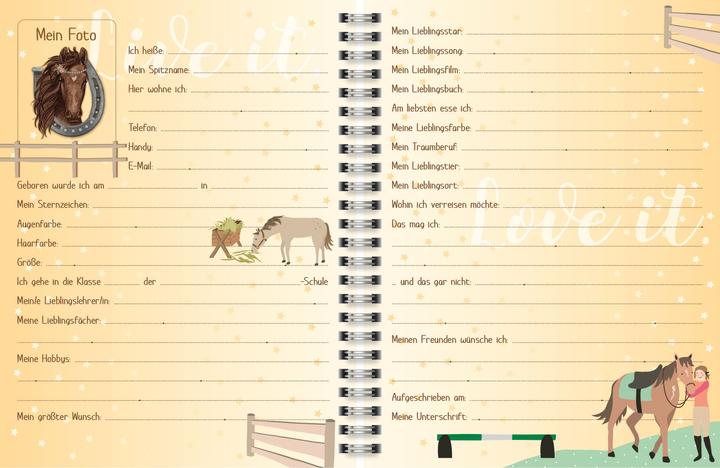 Live it
Mein Foto
Ich heiße:
Mein Spitzname:
Hier wohne ich:
Telefon:
Handy:
E-Mail:
Geboren wurde ich am in
Mein Sternzeichen:
Augenfarbe:
Haarfarbe:
Größe:
Ich gehe in die Klasse der -Schule
Mein/e Lieblingslehrer/in:
Meine Lieblingsfächer:
Meine Hobbys:
Mein größter Wunsch:
Mein Lieblingsstar:
Mein Lieblingssong:
Mein Lieblingsfilm:
Mein Lieblingsbuch:
Am liebsten esse ich:
Meine Lieblingsfarbe:
Mein Traumberuf:
Mein Lieblingstier:
Mein Lieblingsort:
Wohin ich verreisen möchte:
Das mag ich:
Love it
... und das gar nicht:
Meinen Freunden wünsche ich:
Aufgeschrieben am:
Meine Unterschrift: